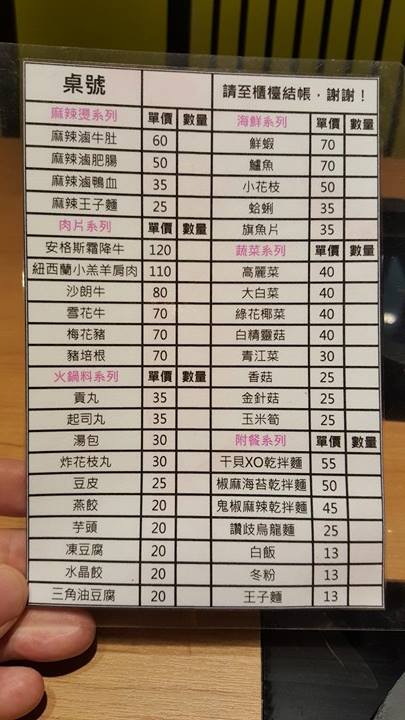 桌號 請至櫃檯結帳，謝謝！
麻辣燙系列 單價 數量
麻辣滷牛肚 60
麻辣滷肥腸 50
麻辣滷鴨血 35
麻辣王子麵 25
肉片系列 單價 數量
安格斯霜降牛 120
紐西蘭小羔羊肩肉 110
沙朗牛 80
雪花牛 70
梅花豬 70
豬培根 70
火鍋料系列 單價 數量
貢丸 35
起司丸 35
湯包 30
炸花枝丸 30
豆皮 25
燕餃 20
芋頭 20
凍豆腐 20
水晶餃 20
三角油豆腐 20
海鮮系列 單價 數量
鮮蝦 70
鱸魚 70
小花枝 50
蛤蜊 35
旗魚片 35
蔬菜系列 單價 數量
高麗菜 40
大白菜 40
綠花椰菜 40
白精靈菇 40
青江菜 30
香菇 25
金針菇 25
玉米筍 25
附餐系列 單價 數量
干貝XO乾拌麵 55
椒麻海苔乾拌麵 50
鬼椒麻辣乾拌麵 45
讚歧烏龍麵 25
白飯 13
冬粉 13
王子麵 13